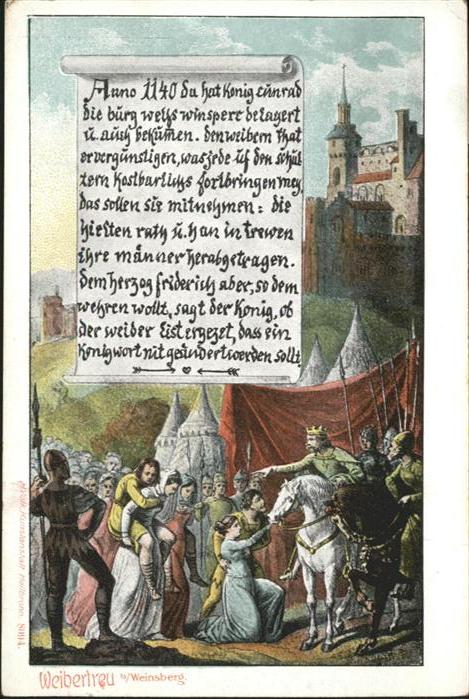 Anno 1140 da hat König cunrad
die burg welfs winsperc belagert
u. auch bekumen. den weibern that
er vergunstigen, was jede uf den schul
tern Kostbarlichs fortbringen mey,
das sollen sie mitnehmen: die
hielten rath u. han in trewen
ihre männer herabgetragen.
dem herzog friderich aber, so dem
wehren wollt, sagt der König, ob
der weiber list ergezet, dass ein
Königwort nit geändert werden sollt.
Weibertreu b/Weinsberg.
Kunstanstalt Heilbronn. 8994